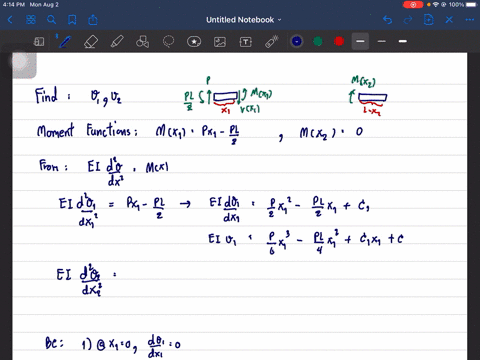 4:14 PM Mon Aug 2
100%
Untitled Notebook
Find : v₁, v₂
P
PL/2
x₁
M(x₁)
V(x₁)
M(x₂)
L-x₂
Moment Functions: M(x₁) = Px₁ - PL/2 , M(x₂) = 0
From: EI d²v/dx² = M(x)
EI d²v₁/dx₁² = Px₁ - PL/2 → EI dv₁/dx₁ = P/2 x₁² - PL/2 x₁ + C₁
EI v₁ = P/6 x₁³ - PL/4 x₁³ + C₁x₁ + C
EI d²v₂/dx₂² =
BC: 1) @ x₁=0, dv₁/dx₁ = 0